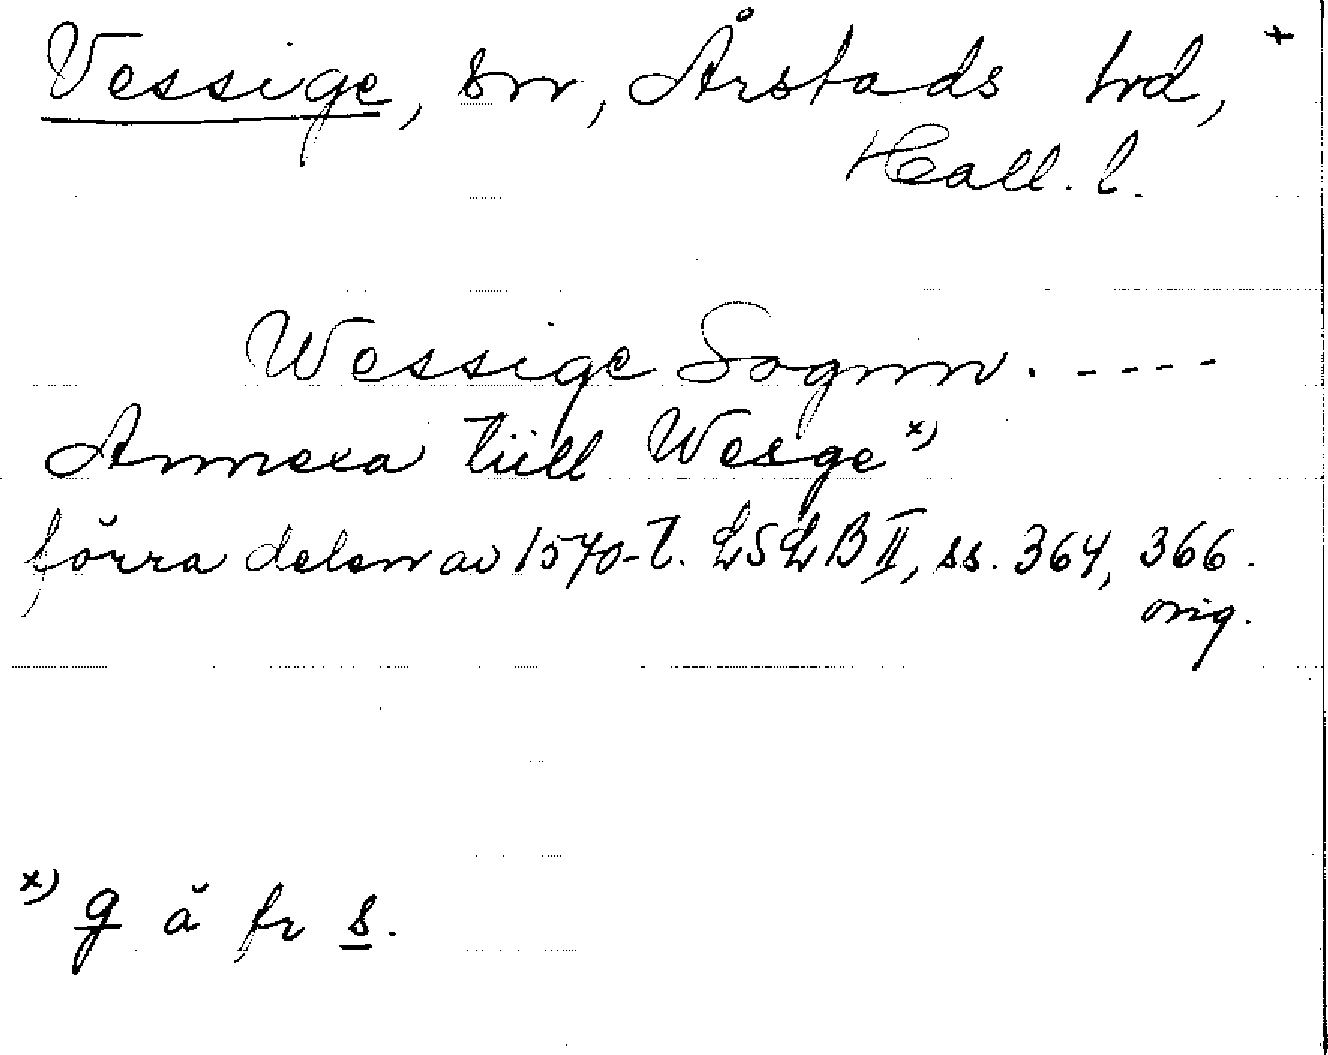 Vessige, sn, Årstads hd, +
Hall. l.
Wessige Sognn. ----
Annexa tiill Wesge x)
förra delen av 1570-t. LSLB II, ss. 364, 366.
orig.
x) g ä fr s.